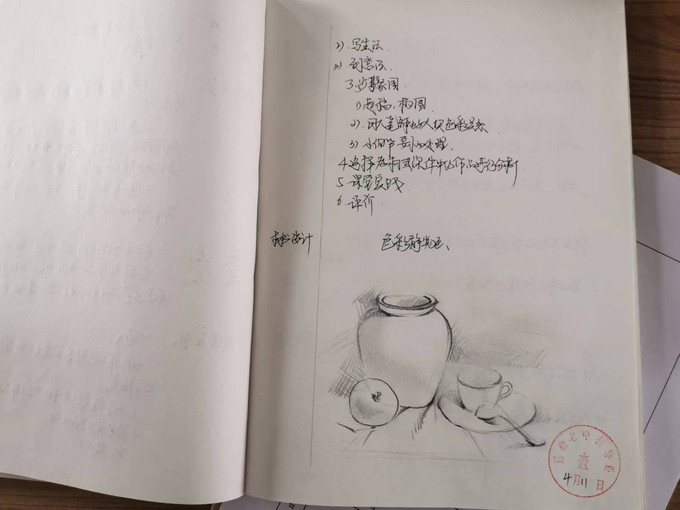 2). 写生法.
3). 创意法.
3. 步骤图
1) 起稿. 构图.
2). 用大笔铺大体色彩关系
3) 小细节 刻画处理.
4. 选择 课件中的作品进行分析
5. 课堂实践.
6. 评价
板书设计 色彩静物画、
查
4月11日